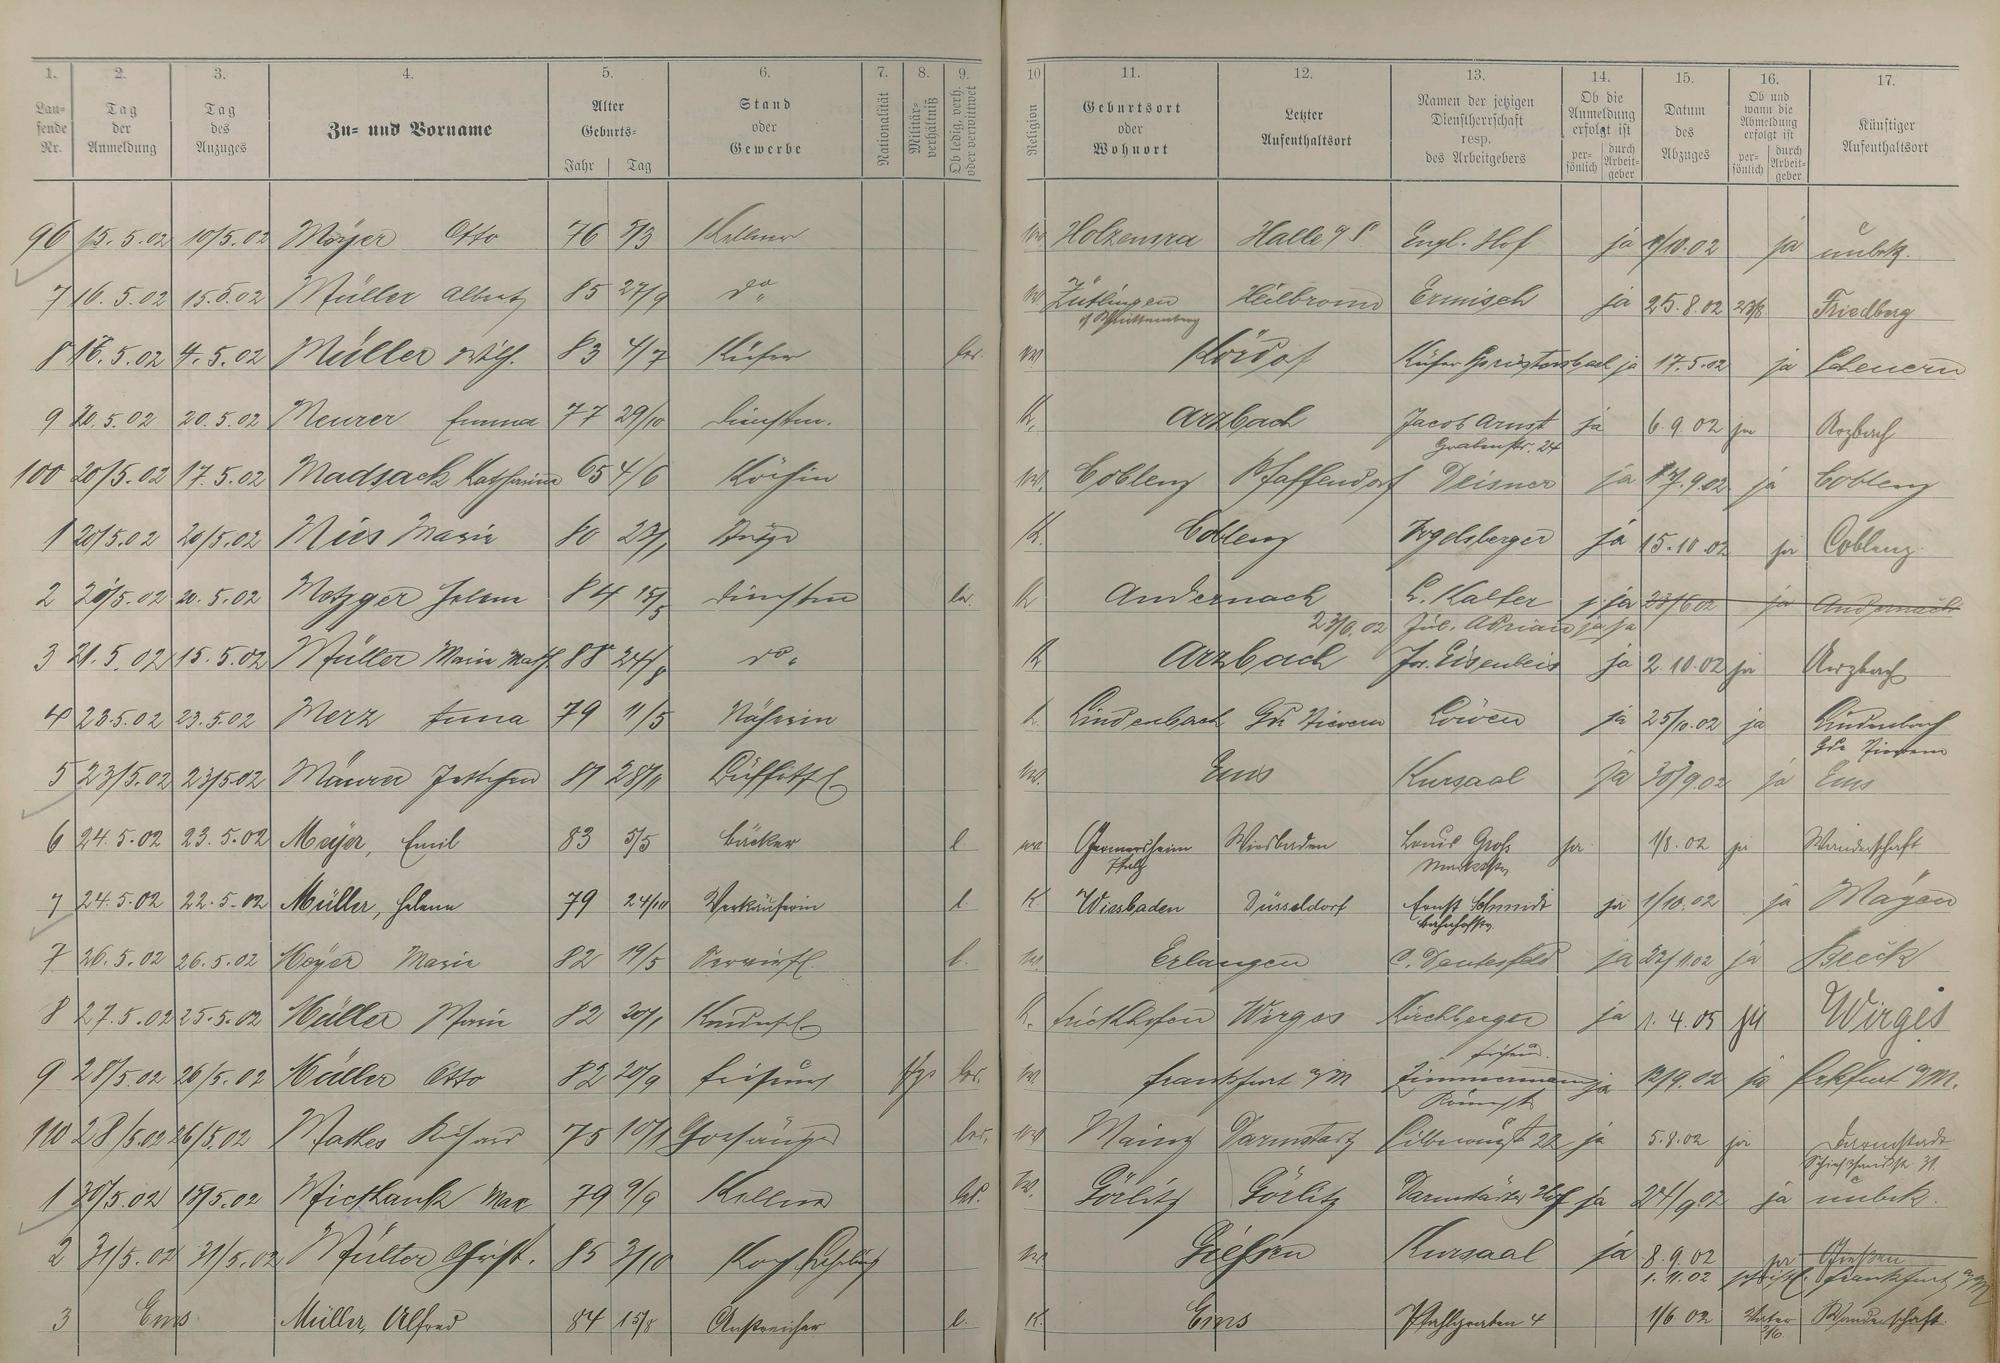 1. 2. 3. 4. 5. 6. 7. 8. 9. 10 11. 12. 13. 14. 15. 16. 17.
Lau-
fende
Nr.
Tag
der
Anmeldung
Tag
des
Anzuges
Zu- und Vorname
Alter
Geburts-
Jahr Tag
Stand
oder
Gewerbe
Nationalität
Militär-
verhältniß
Ob ledig, verh.
oder verwittwet
Religion
Geburtsort
oder
Wohnort
Letzter
Aufenthaltsort
Namen der jetzigen
Dienstherrschaft
resp.
des Arbeitgebers
Ob die
Anmeldung
erfolgt ist
per-
sönlich
durch
Arbeit-
geber
Datum
des
Abzuges
Ob und
wann die
Abmeldung
erfolgt ist
per-
sönlich
durch
Arbeit-
geber
Künftiger
Aufenthaltsort
96 15.5.02 10/5.02 Otto 76 5/3 Kellner Halle a/S. Engl. Hof ja 1/10.02 ja unbek.
7 16.5.02 15.5.02 Müller Albert 85 27/9 do Züttlingen Heilbronn Ermisch ja 25.8.02 Friedberg
8 16.5.02 4.5.02 Müller Wilh. 83 4/7 Küfer Kördof Küfer ja 17.5.02 ja
9 20.5.02 20.5.02 Meurer Emma 77 29/10 Dienstm. K. Arzbach Jacob Arnst ja 6.9.02 ja Arzbach
Grabenstr. 24
100 20/5.02 17.5.02 Madsack Katharina 65 4/6 Köchin Coblenz Pfaffendorf Deisner ja 17.9.02 ja Coblenz
1 20/5.02 20/5.02 Mies Marie 80 K. Coblenz Vogelsberger ja 15.10.02 ja Coblenz
2 20/5.02 20.5.02 Metzger Helene 84 15/5 Dienstm K Andernach L. Kalter j. ja 23/6 02 ja Andernach
Jul. Adrian ja ja
3 21.5.02 15.5.02 Müller Maria Math. 88 24/8 do K Arzbach Jos. Eisenbeis ja 2.10.02 ja Arzbach
4 23.5.02 23.5.02 Merz Anna 79 11/5 Näherin Lindenbach Löwen ja 25/10.02 ja Lindenbach
5 23/5.02 23/5.02 Mäurer Jettchen 81 28/11 Ems Kursaal ja 30/9.02 ja Ems
6 24.5.02 23.5.02 Mayer, Emil 83 5/5 Bäcker l Germersheim Wiesbaden Louis Groß ja 1/8.02 ja Wanderschaft
Pfalz
7 24.5.02 22.5.02 Müller, Helene 79 24/10 Verkäuferin l. K. Wiesbaden Düsseldorf Ernst Schmidt ja 1/10.02 ja Mayen
Bahnhofstr.
7 26.5.02 26.5.02 Meyer Marie 82 19/5 l. Erlangen ja 22/11 02 ja
8 27.5.02 25.5.02 Müller Marie 82 20/1 K. Frickhofen Wirges Kirchberger ja 1.4.05 ja Wirges
9 28/5.02 26/5.02 Müller Otto 82 20/9 Friseur led. Frankfurt a/M Zimmermann ja 12/9.02 ja Frkfurt a/M.
Römerstr.
110 28/5.02 26/5.02 Mathes Richard 75 10/1 led. Mainz Darmstadt 22 ja 5.8.02 ja Darmstadt
1 30/5.02 15/5.02 Max 79 9/9 Kellner led. Görlitz Görlitz Darmstädter Hof ja 24/9.02 ja unbek.
2 31/5.02 31/5.02 Christ. 85 3/10 Koch Gießen Kursaal ja 8.9.02 ja Gießen
1.11.02 Frankfurt a/M
3 Ems Müller, Alfred 84 15/8 Anstreicher l. K. Ems Pfahlgraben 4 1/6 02 Vater Wanderschaft